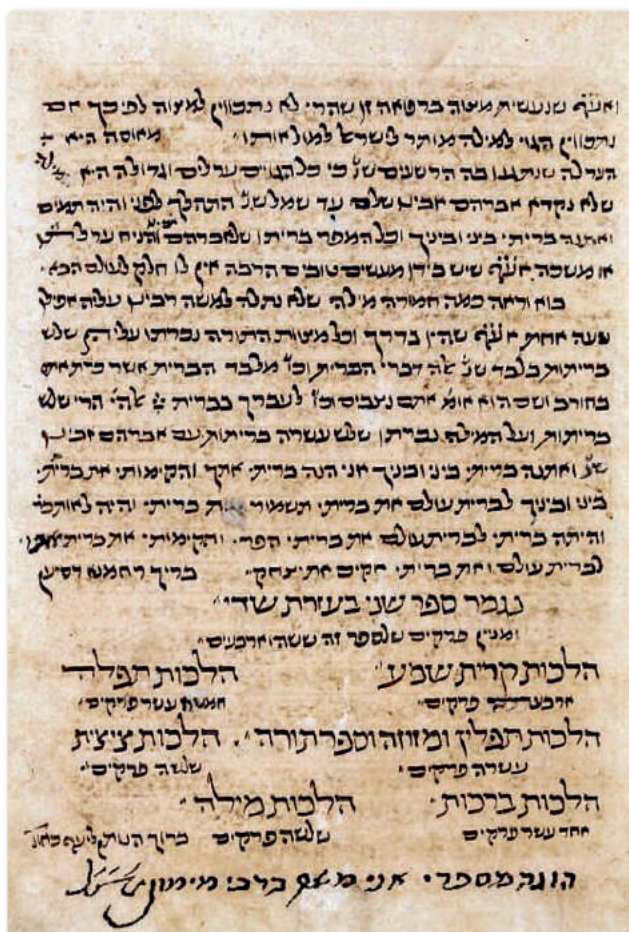 ואע״פ שנעשית מצוה ברפואה זו שהרי לא נתכוון למצוה לפיכך אם
נתכוון הגוי למילה מותר לישראל למול אותו מאוסה היא
הערלה שנתגנו בה הרשעים שנ׳ כי כל הגוים ערלים וגדולה היא
שלא נקרא אברהם אבינו שלם עד שמל שנ׳ התהלך לפני והיה תמים
ואתנה בריתי ביני ובינך וכל המפר בריתו שלאברהם והניח ערלתו
או משכה אע״פ שיש בידו מעשים טובים הרבה אין לו חלק לעולם הבא
בוא וראה כמה חמורה מילה שלא נתלה למשה רבינו עליה אפילו
שעה אחת אע״פ שהיו בדרך וכל מצות התורה נכרתו עליהן שלש
בריתות בלבד שנ׳ אלה דברי הברית וכו׳ מלבד הברית אשר כרת אתם
בחורב ושם הוא אומ׳ אתם נצבים וכו׳ לעברך בברית ה׳ אלהיך הרי שלש
בריתות ועל המילה נכרתו שלש עשרה בריתות עם אברהם אבינו
שנ׳ ואתנה בריתי ביני ובינך אני הנה בריתי אתך והקימותי את בריתי
ביני ובינך לברית עולם את בריתי תשמור את בריתי והיה לאות ברית
והיתה בריתי לברית עולם את בריתי הפר והקימותי את בריתי אתו
לברית עולם ואת בריתי אקים את יצחק בריך רחמנא דסיען
נגמר ספר שני בעזרת שדי
ומנין פרקים שלספר זה ששה וארבעים
הלכות קרית שמע הלכות תפלה
ארבעה פרקים חמשה עשר פרקים
הלכות תפלין ומזוזה וספר תורה הלכות ציצית
עשרה פרקים שלשה פרקים
הלכות ברכות הלכות מילה
אחד עשר פרקים שלשה פרקים ברוך הנותן ליעף כח
הוגה מספרי אני משה ברבי מימון זצ״ל